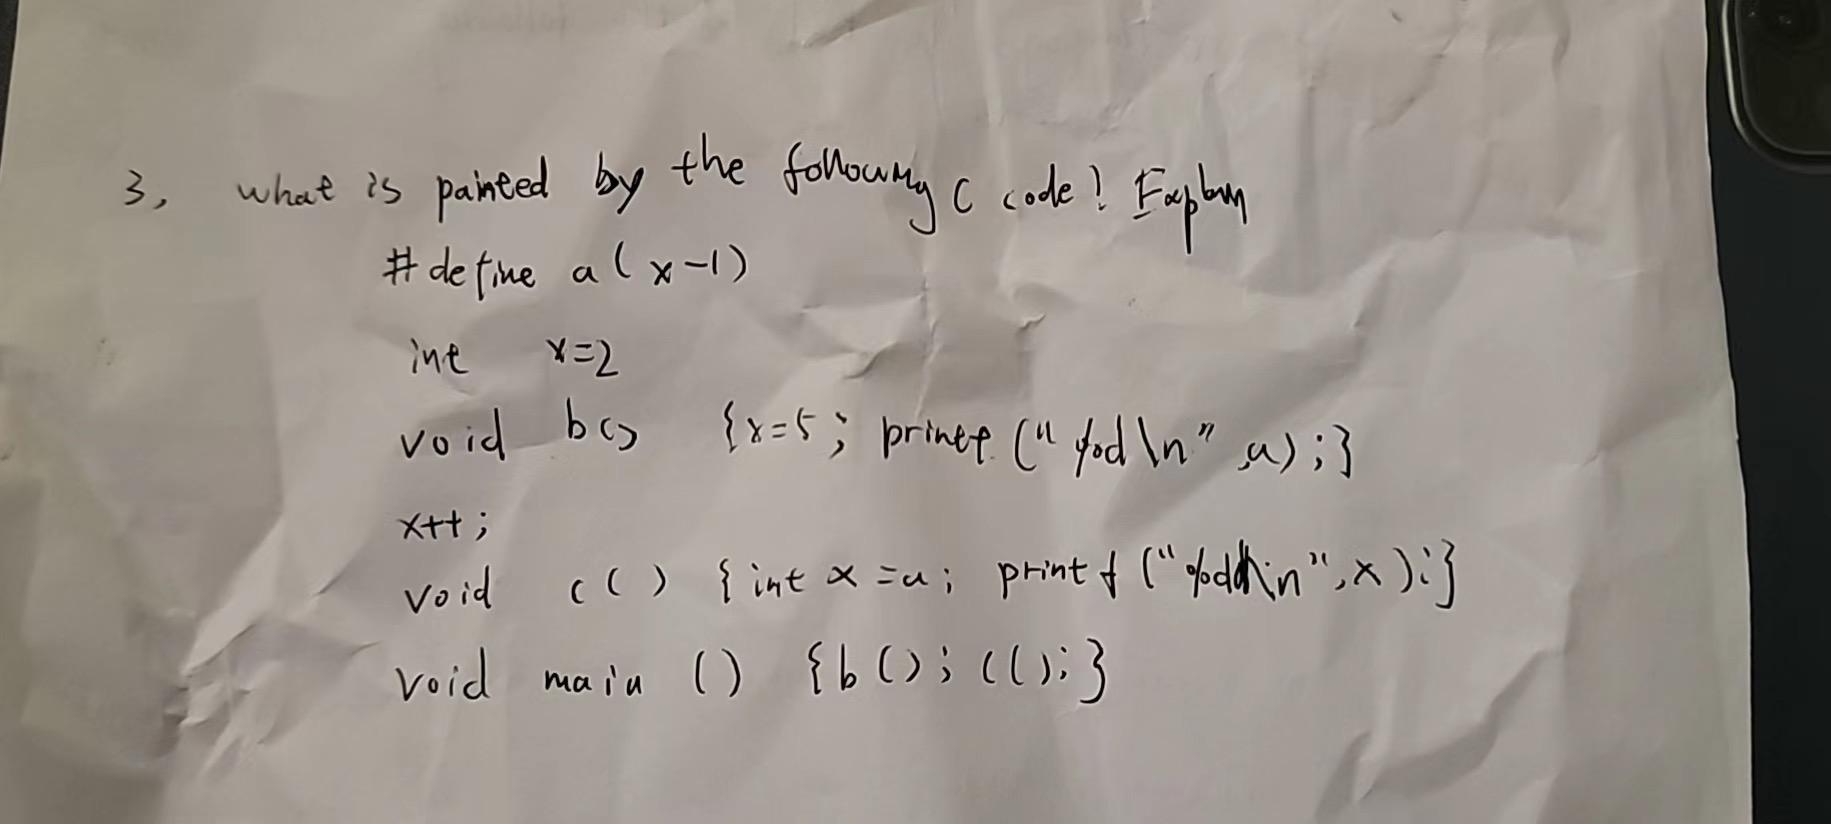 3, what is painted by the following C code? Explain
#define a (x-1)
int x=2
void b() {x=5; printf ("%d\n", a);}
x++;
void c() {int x=a; printf ("%d\n", x);}
void main () {b(); c();}